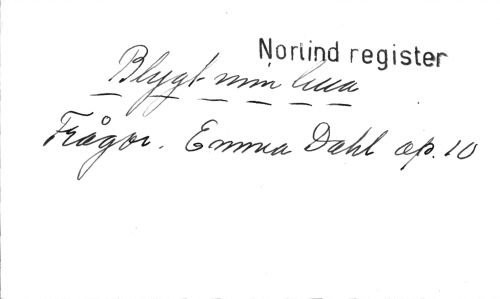 Norlind register
Blygt min
Frågor. Emma Dahl op. 10